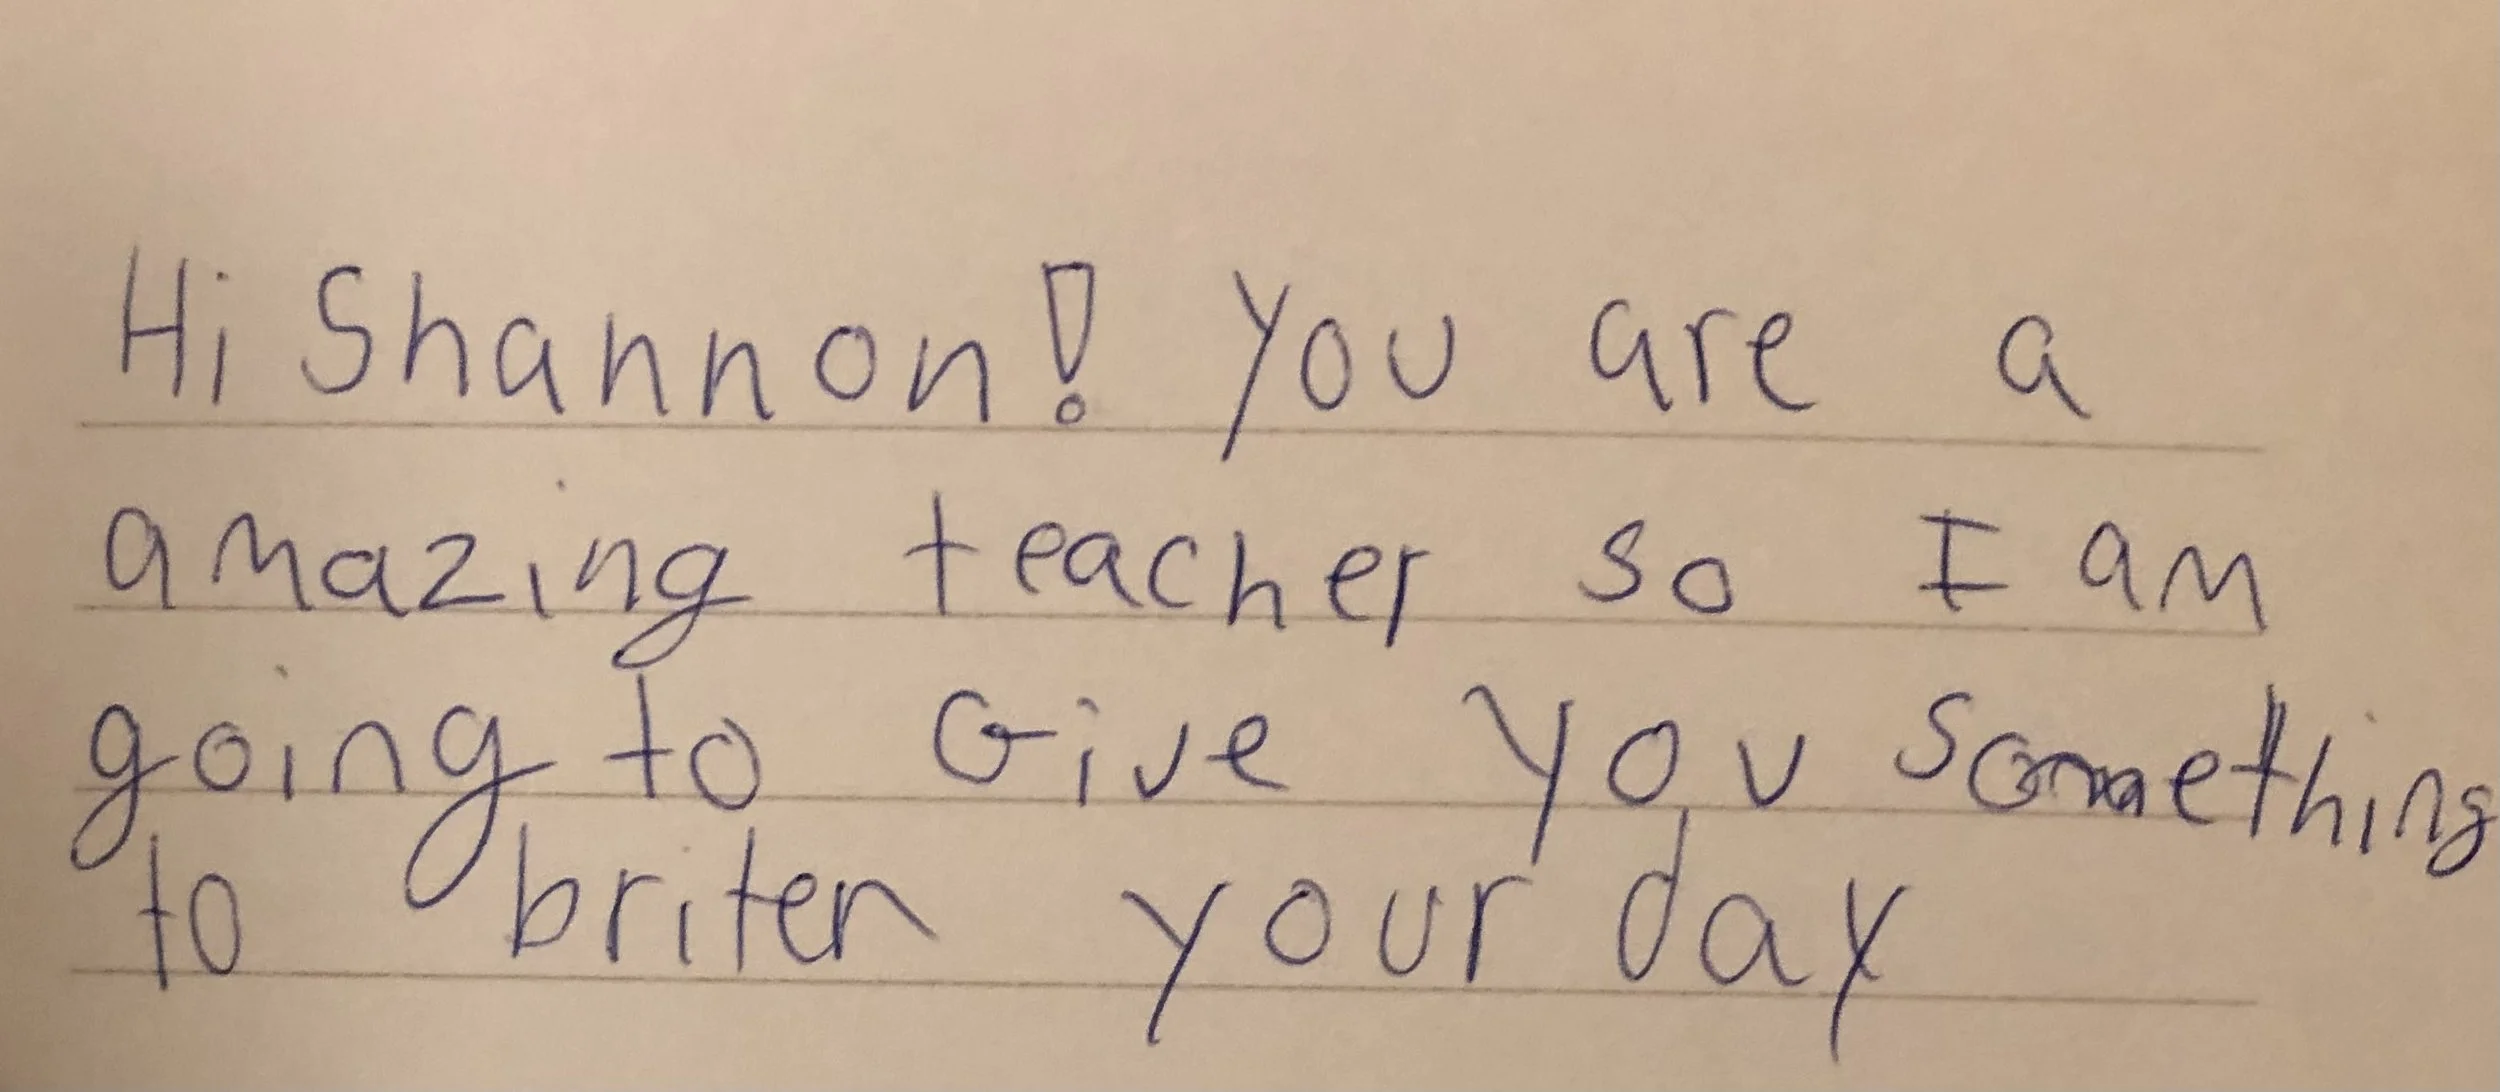 Hi Shannon! You are a
amazing teacher so I am
going to Give you something
to briten your day